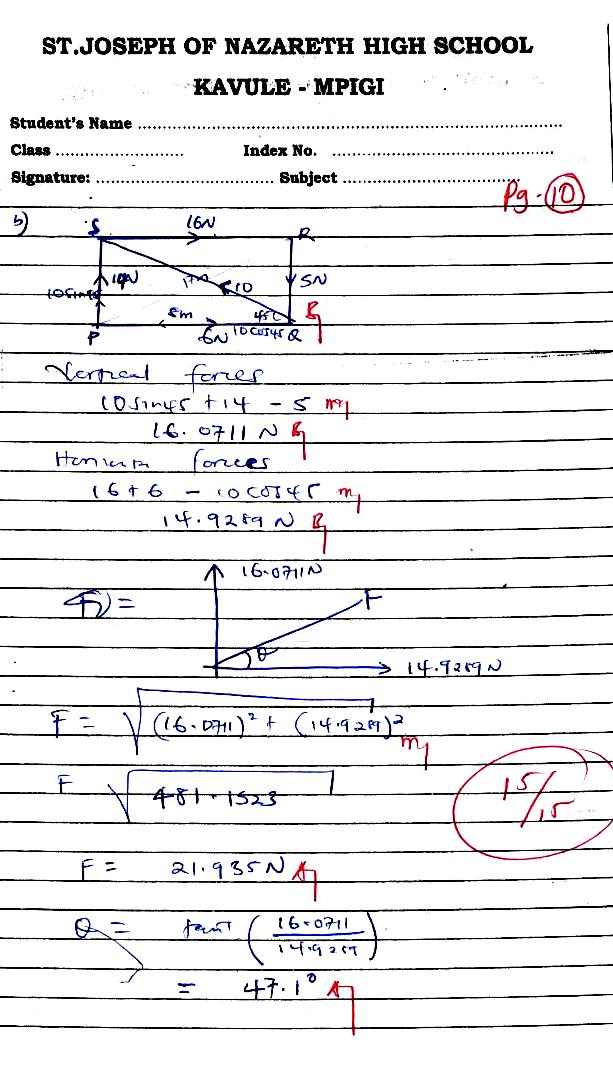 ST.JOSEPH OF NAZARETH HIGH SCHOOL
KAVULE - MPIGI
Student's Name
Class Index No.
Signature: Subject
Pg. 10
b)
S 16N R
14N 10 5N
10sin45 45° B1
P 8m 6N 10cos45 Q
Vertical forces
10sin45 + 14 - 5 m1
16.0711 N B1
forces
16 + 6 - 10cos45 m1
14.9289 N B1
16.0711N
F
θ
14.9289N
F = √(16.0711)² + (14.9289)² m1
F √481.1523
15/15
F = 21.935N A1
θ = tan⁻¹ (16.0711/14.9289)
= 47.1° A1